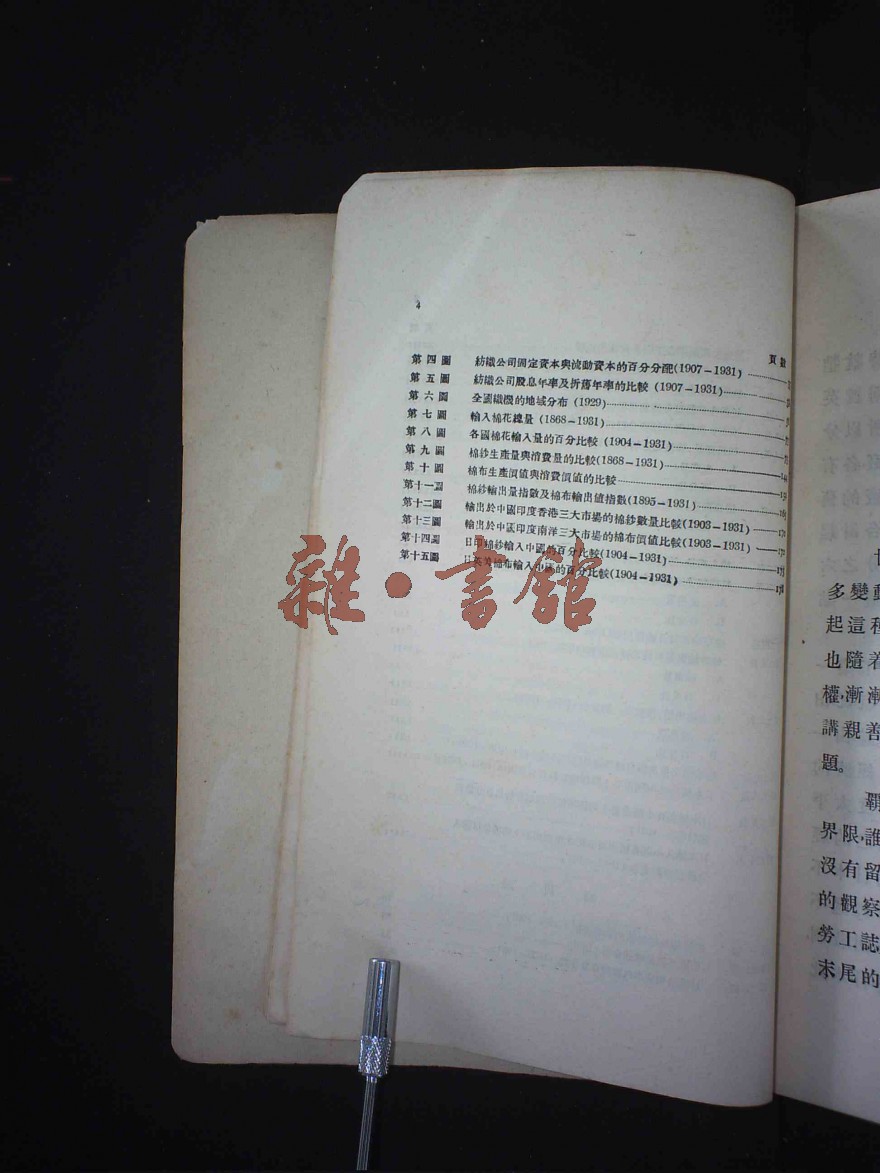 4
頁數
第四圖 紡織公司固定資本與流動資本的百分分配(1907-1931)
第五圖 紡織公司股息年率及折舊年率的比較(1907-1931)
第六圖 全國織機的地域分布(1929)
第七圖 輸入棉花總量(1868-1931)
第八圖 各國棉花輸入量的百分比較(1904-1931)
第九圖 棉紗生產量與消費量的比較(1868-1931)
第十圖 棉布生產價值與消費價值的比較
第十一圖 棉紗輸出量指數及棉布輸出值指數(1895-1931)
第十二圖 輸出於中國印度香港三大市場的棉紗數量比較(1903-1931)
第十三圖 輸出於中國印度南洋三大市場的棉布價值比較(1903-1931)
第十四圖 日印棉紗輸入中國的百分比較(1904-1931)
第十五圖 日英美棉布輸入中國的百分比較(1904-1931)
雜·書館
多變動
起這種
也隨着
權,漸漸
講親善
題。
霸
界限,誰
沒有留
的觀察
勞工誌
末尾的